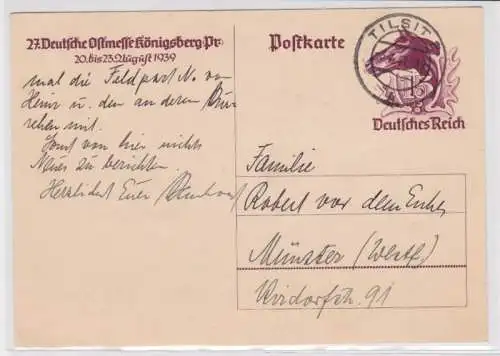 27. Deutsche Ostmesse Königsberg-Pr.
20. bis 23. August 1939
Postkarte
TILSIT
15
Deutsches Reich
mal die Feldpost N. von
Heinz u. den an deren
mit.
Sonst von hier nichts
Neues zu berichten.
Herzlichst Euer
Familie
Robert vor dem Esche
Münster (Westf)
91